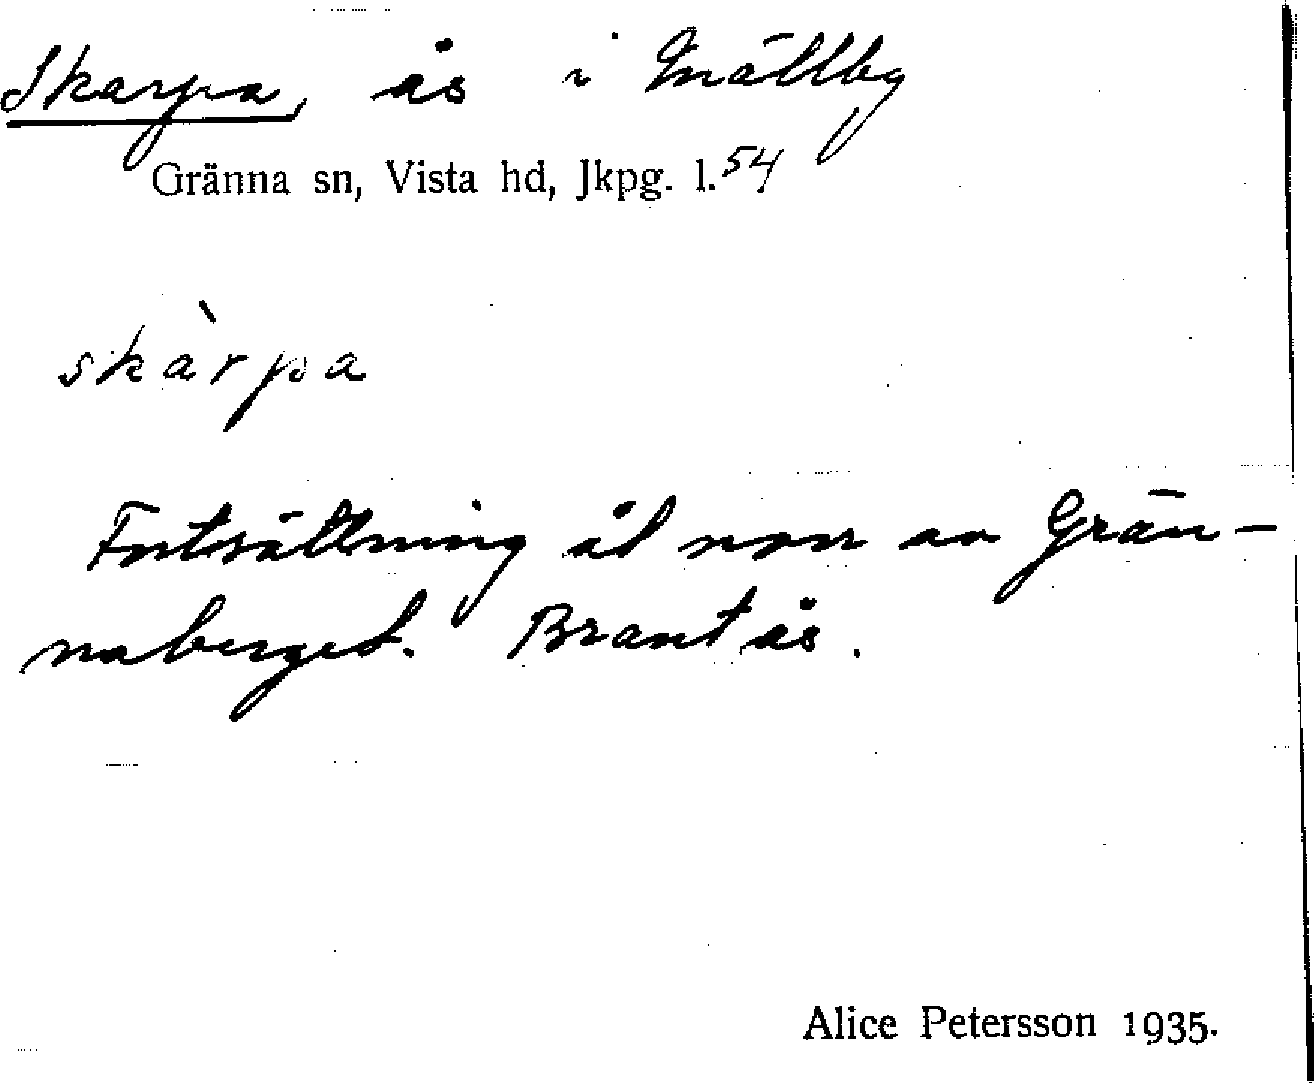 Skarpa, ås i Smällby
Gränna sn, Vista hd, Jkpg. l. 54
skàrpa
Fortsättning åt norr av Grän-
naberget. Brant ås.
Alice Petersson 1935.